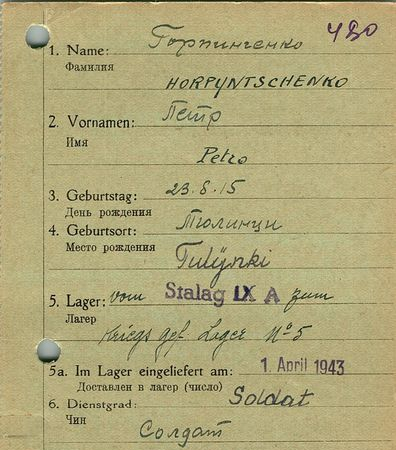 Горпинченко
490
1. Name:
Фамилия
HORPYNTSCHENKO
2. Vornamen: Петр
Имя
Petro
3. Geburtstag: 23.8.15
День рождения
4. Geburtsort: Тюлинци
Место рождения
Tulÿnki
5. Lager: vom Stalag IX A zum
Лагер
Kriegs gef. Lager № 5
5a. Im Lager eingeliefert am: 1. April 1943
Доставлен в лагер (число)
6. Dienstgrad: Soldat
Чин
Солдат